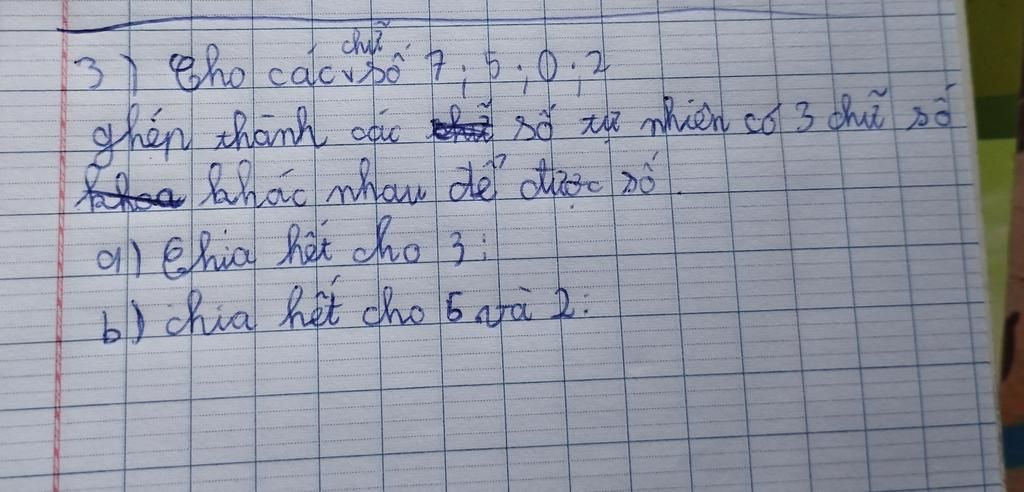 3) Cho các chữ số 7; 5; 0; 2
ghép thành các số tự nhiên có 3 chữ số
khác nhau để được số.
a) Chia hết cho 3:
b) chia hết cho 5 và 2: